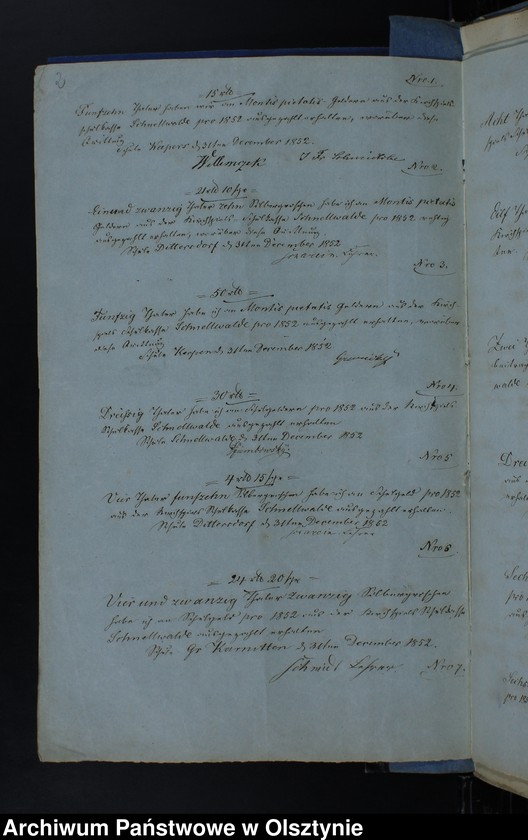 2
Nro 1.
15 rtl
Funfzehn Thaler haben wir an Montis pietatis Geldern aus der Kirchspiels
Schulkasse Schnellwalde pro 1852 ausgezahlt erhalten, worüber diese
Quittung
Schule Koepors d 31ten December 1852.
Nro 2.
21 rtl 10 sgr
Einund zwanzig Thaler zehn Silbergroschen habe ich an Montis pietatis
Geldern aus der Kirchspiels Schulkasse Schnellwalde pro 1852 richtig
ausgezahlt erhalten, worüber diese Quittung.
Schule Dittersdorf d 31ten December 1852
Lehrer.
Nro 3.
50 rtl
Funfzig Thaler habe ich an Montis pietatis Geldern aus der Kirch-
spiels Schulkasse Schnellwalde pro 1852 ausgezahlt erhalten, worüber
diese Quittung
Schule d 31ten December 1852
Nro 4.
= 30 rtl =
Dreißig Thaler habe ich an Schulgeldern pro 1852 aus der Kirchspiels
Schulkasse Schnellwalde ausgezahlt erhalten
Schule Schnellwalde d 31ten December 1852
Nro 5
= 4 rtl 15 sgr =
Vier Thaler funfzehn Silbergroschen habe ich an Schulgeld pro 1852
aus der Kirchspiels Schulkasse Schnellwalde ausgezahlt erhalten.
Schule Dittersdorf d 31ten December 1852
Lehrer
Nro 6
= 24 rtl. 20 sgr =
Vier und zwanzig Thaler zwanzig Silbergroschen
habe ich an Schulgeld pro 1852 aus der Kirchspiels Schulkasse
Schnellwalde ausgezahlt erhalten
Schule Gr Karnitten d 31ten December 1852.
Schmidt Lehrer
Nro 7.
Archiwum Państwowe w Olsztynie